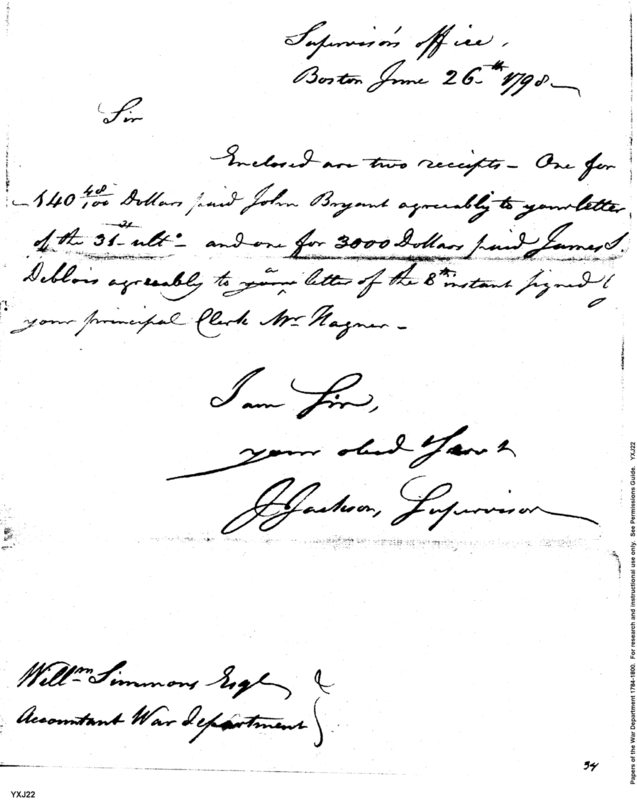 Supervisor's office,
Boston June 26th 1798
Sir
Enclosed are two receipts - One for
$40 48/100 Dollars paid John Bryant agreeably to your letter
of the 31st ulto - and one for 3000 Dollars paid James S.
Deblois agreeably to a letter of the 8th instant signed by
your principal Clerk Mr Hagner -
I am Sir,
your obed Servt
J Jackson, Supervisor
Willm Simmons Esqr
Accountant War department
34
YXJ22
Papers of the War Department 1784-1800. For research and instructional use only. See Permissions Guide. YXJ22